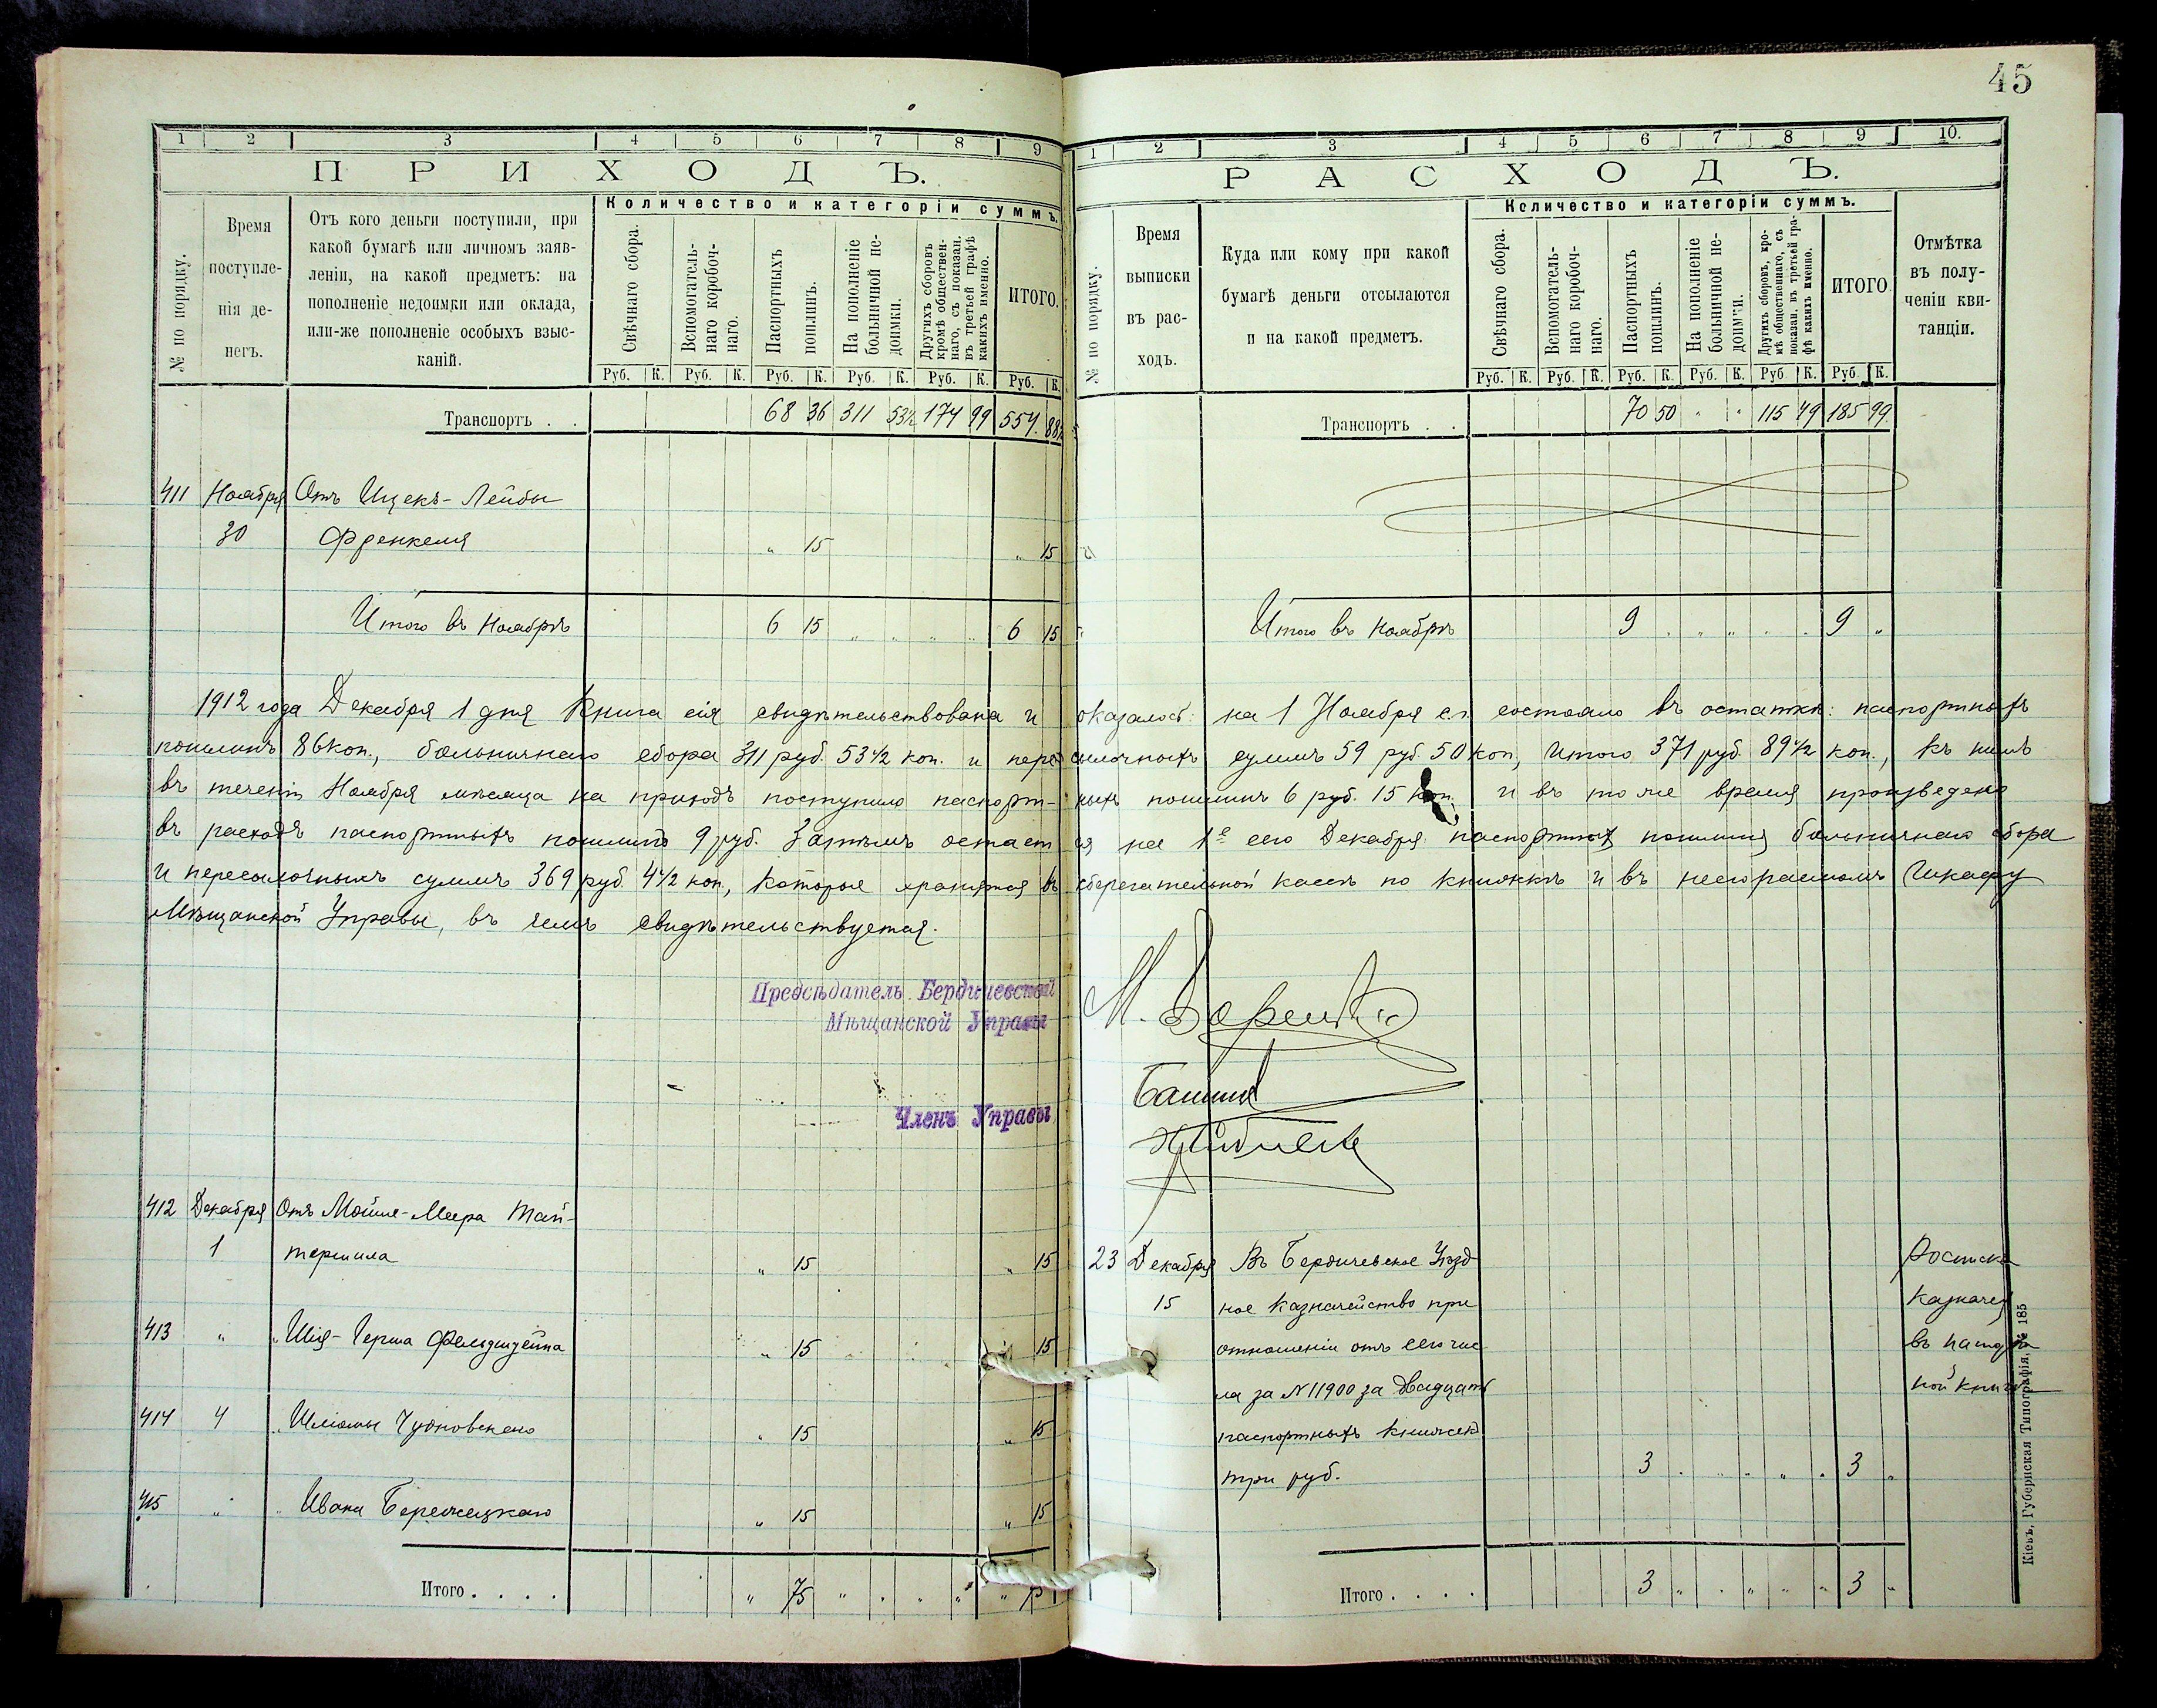 45
1 2 3 4 5 6 7 8 9
ПРИХОДЪ.
№ по порядку.
Время поступле-
нія де-
негъ.
Отъ кого деньги поступили, при
какой бумагѣ или личномъ заяв-
леніи, на какой предметъ: на
пополненіе недоимки или оклада,
или-же пополненіе особыхъ взыс-
каній.
Количество и категоріи суммъ.
Свѣчнаго сбора.
Вспомогатель-
наго коробоч-
наго.
Паспортныхъ
пошлинъ.
На пополненіе
больничной не-
доимки.
Другихъ сборовъ
кромѣ обществен-
наго, съ показан.
въ третьей графѣ
какихъ именно.
ИТОГО.
Руб. К. Руб. К. Руб. К. Руб. К. Руб. К. Руб. К.
Транспортъ . . 68 36 311 53½ 174 99 554 88½
411 Ноября Отъ Ицекъ-Лейбы
30 Френкеля " 15 " 15
Итого въ Ноябрѣ 6 15 " " " " 6 15
1 2 3 4 5 6 7 8 9 10.
РАСХОДЪ.
№ по порядку.
Время
выписки
въ рас-
ходъ.
Куда или кому при какой
бумагѣ деньги отсылаются
и на какой предметъ.
Количество и категоріи суммъ.
Свѣчнаго сбора.
Вспомогатель-
наго коробоч-
наго.
Паспортныхъ
пошлинъ.
На пополненіе
больничной не-
доимки.
Другихъ сборовъ, кро-
мѣ общественнаго, съ
показан. въ третьей гра-
фѣ какихъ именно.
ИТОГО
Отмѣтка
въ полу-
ченіи кви-
танціи.
Руб. К. Руб. К. Руб. К. Руб. К. Руб. К. Руб. К.
Транспортъ . . 70 50 " " 115 49 185 99
Итого въ Ноябрѣ 9 " " " " " 9 "
1912 года Декабря 1 дня Книга сія свидѣтельствована и оказалось: на 1 Ноября с.г. состояло въ остаткѣ: паспортныхъ
пошлинъ 86 коп., больничнаго сбора 311 руб. 53½ коп. и пересылочныхъ суммъ 59 руб. 50 коп, Итого 371 руб. 89½ коп., къ нимъ
въ теченіи Ноября мѣсяца на приходъ поступило паспорт-ныхъ пошлинъ 6 руб. 15 коп. и въ то же время произведено
въ расходъ паспортныхъ пошлинъ 9 руб. Затѣмъ остается на 1е сего Декабря паспортныхъ пошлинъ больничнаго сбора
и пересылочныхъ суммъ 369 руб. 4½ коп., которые хранятся въ сберегательной кассѣ по книжкѣ и въ несгораемомъ Шкафу
Мѣщанской Управы, въ чемъ свидѣтельствуется.
Предсѣдатель Бердичевской
Мѣщанской Управы
Членъ Управы
412 Декабря Отъ Мойше-Меера Тай-
1 " 15 " 15
413 " " Шія-Герша Фельдштейна " 15 " 15
414 4 " Шліомы Чудновскаго " 15 " 15
415 " " Ивана Бережецкаго " 15 " 15
Итого . . . . " 75 " " " " "
23 Декабря Въ Бердичевское Уѣзд-
15 ное Казначейство при
отношеніи отъ сего чис-
ла за № 11900 за двадцать
паспортныхъ книжекъ
три руб. 3 " " " " " 3 "
Росписка
Казначея
въ
ной книгѣ
Итого . . . . 3 " " " " " 3 "
Кіевъ, Губернская Типографія, № 185